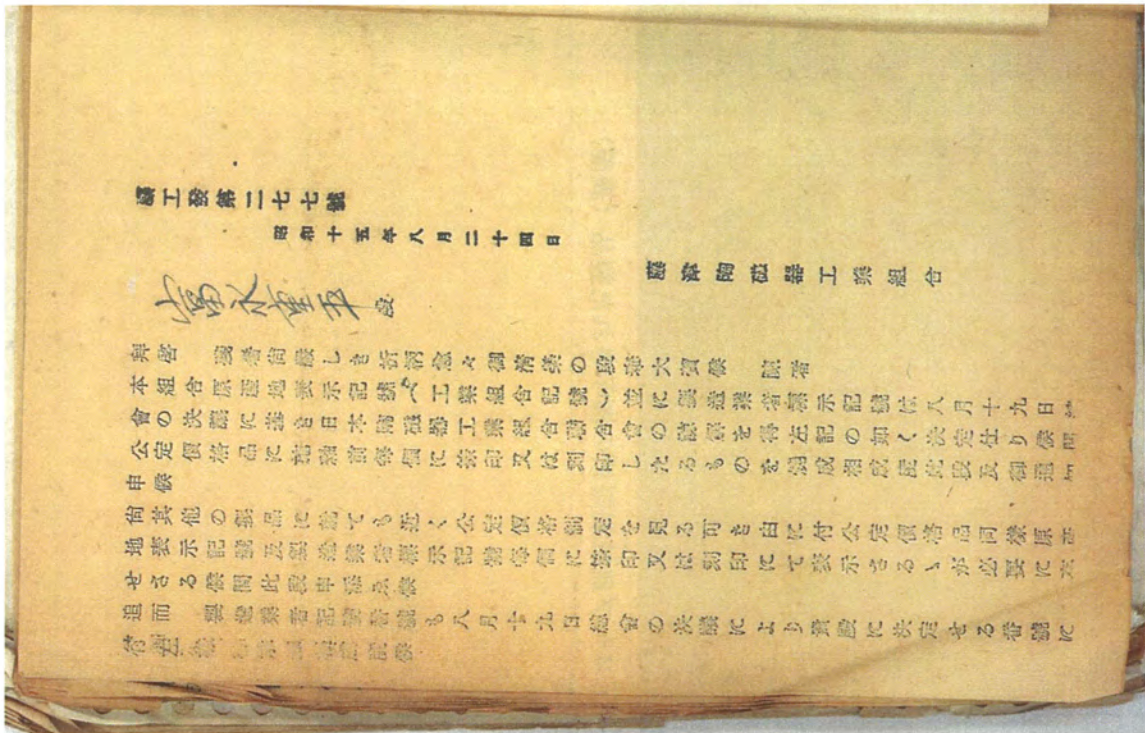 藤工發第二七七號
昭和十五年八月二十四日
藤津陶磁器工業組合
富永重平殿
拜啓 殘暑尚嚴しき折柄愈々御淸榮の段奉大賀候 陳者
本組合原產地表示記號(工業組合記號)並に製造業者標示記號は八月十九日總
會の決議に基き日本陶磁器工業組合聯合會の諒解を得左記の如く決定仕り候間
公定價格品に施釉前每個に捺印又は刻印したるものを燒成相成度此段及御通知
申候
尚其他の製品に就ても近く公定價格制定を見る可き由に付公定價格品同樣原產
地表示記號及製造業者標示記號每個に捺印又は刻印にて表示さるゝが必要に
せさる候間此段申添え候
追而 製造業者記號番號も八月十九日總會の決議により貴殿に決定せる番號に